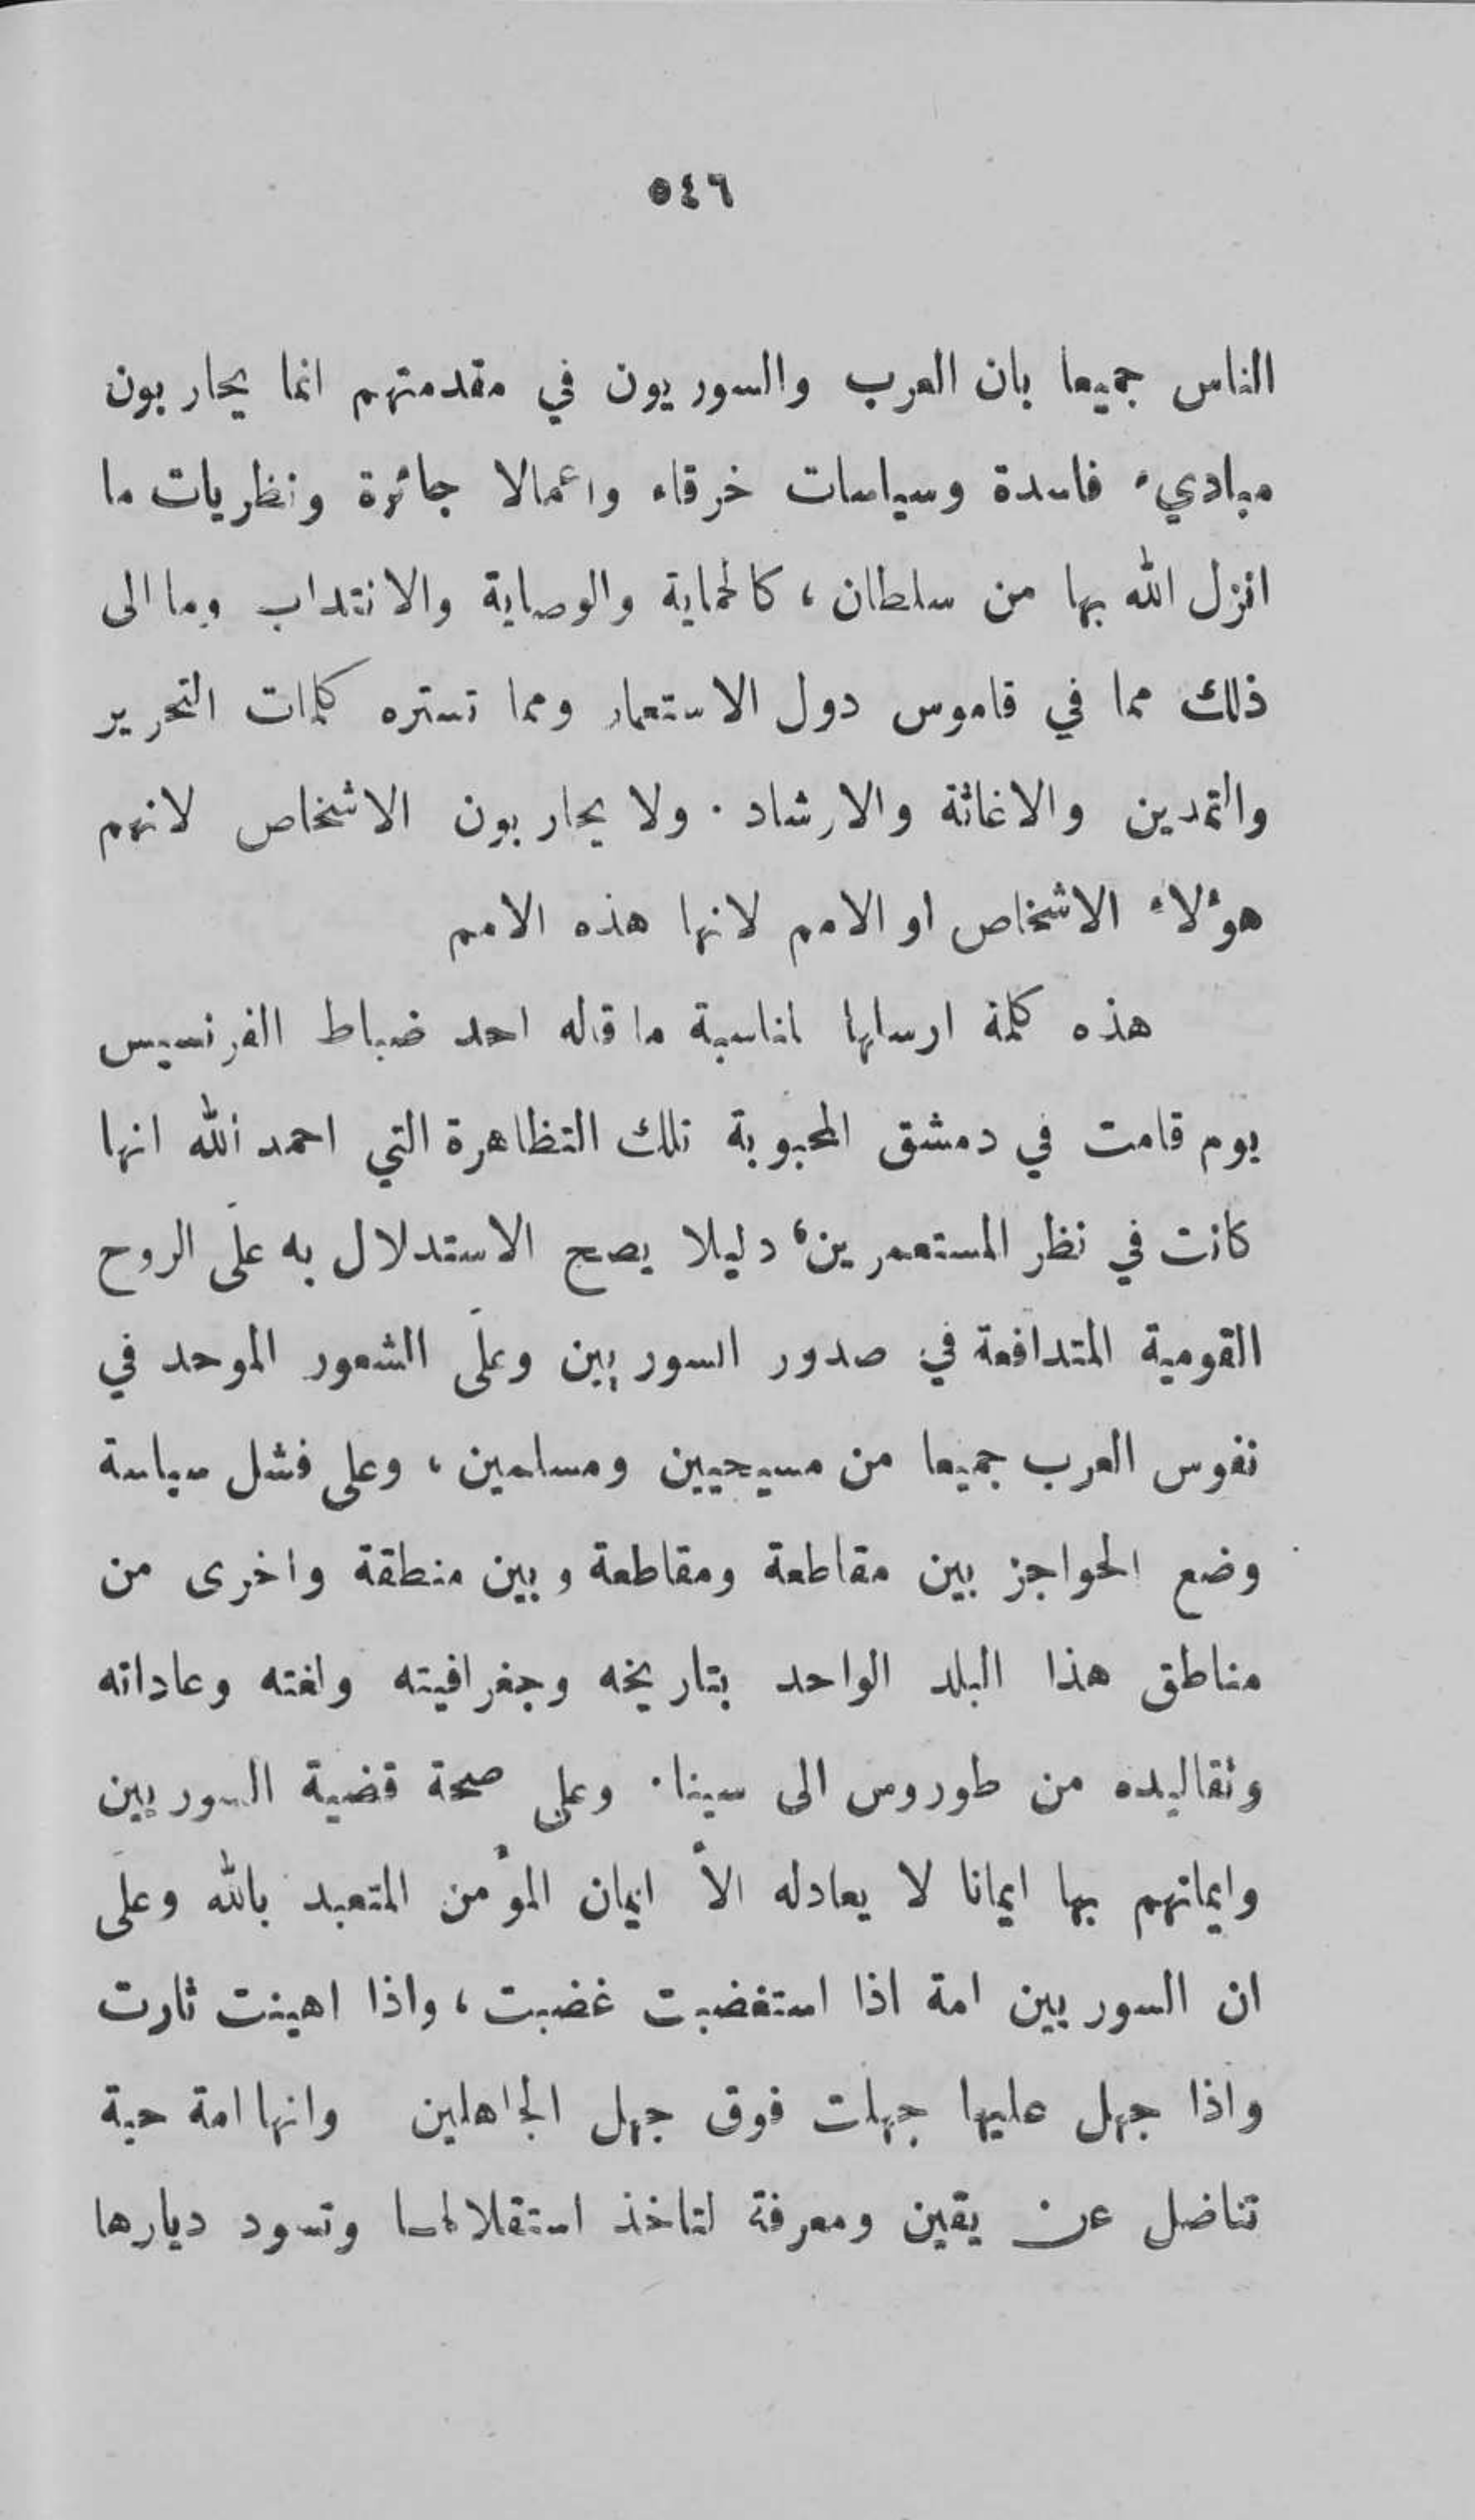 ٥٤٦
الناس جميعا بان العرب والسوريون في مقدمتهم انما يحاربون
مباديء فاسدة وسياسات خرقاء واعمالا جائرة ونظريات ما
انزل الله بها من سلطان، كالحماية والوصاية والانتداب وما الى
ذلك مما في قاموس دول الاستعمار ومما تستره كلمات التحرير
والتمدين والاغاثة والارشاد. ولا يحاربون الاشخاص لانهم
هؤلاء الاشخاص او الامم لانها هذه الامم
هذه كلمة ارسلها لمناسبة ما قاله احد ضباط الفرنسيس
يوم قامت في دمشق المحبوبة تلك التظاهرة التي احمد الله انها
كانت في نظر المستعمرين، دليلا يصح الاستدلال به على الروح
القومية المتدافعة في صدور السوريين وعلى الشعور الموحد في
نفوس العرب جميعا من مسيحيين ومسلمين، وعلى فشل سياسة
وضع الحواجز بين مقاطعة ومقاطعة وبين منطقة واخرى من
مناطق هذا البلد الواحد بتاريخه وجغرافيته ولغته وعاداته
وتقاليده من طوروس الى سينا. وعلى صحة قضية السوريين
وايمانهم بها ايمانا لا يعادله الاّ ايمان المؤمن المتعبد بالله وعلى
ان السوريين امة اذا استغضبت غضبت، واذا اهينت ثارت
واذا جهل عليها جهلت فوق جهل الجاهلين وانها امة حية
تناضل عن يقين ومعرفة لتاخذ استقلالها وتسود ديارها